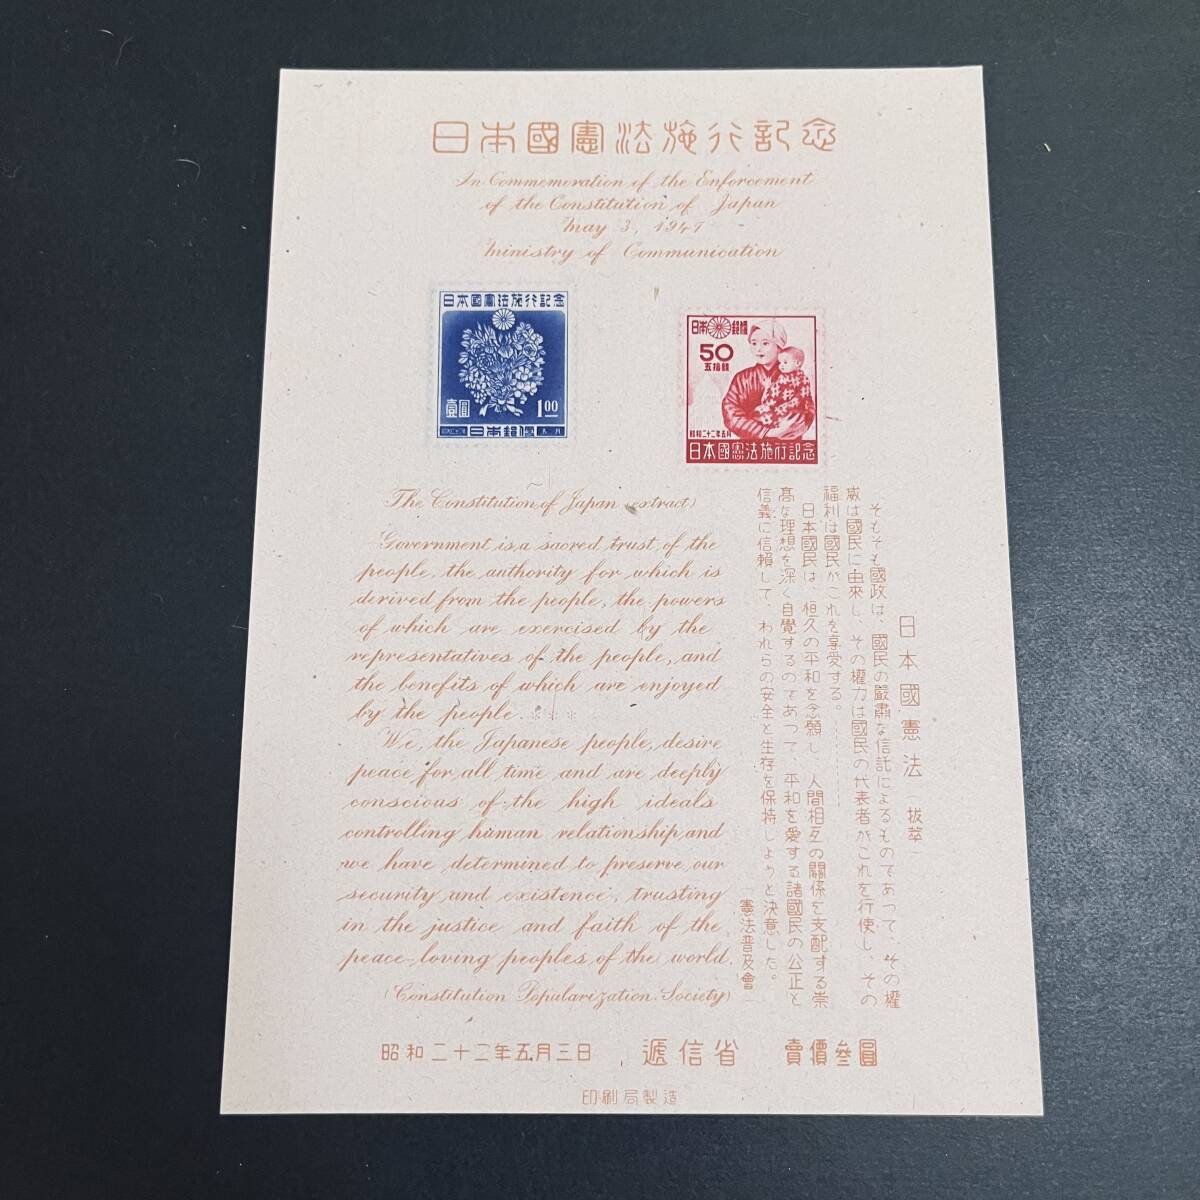 日本國憲法施行記念
In Commemoration of the Enforcement
of the Constitution of Japan
May 3, 1947
Ministry of Communication
日本國憲法施行記念
壹圓
1.00
日本郵便
五・三
日本郵便
50
五拾錢
昭和二十二年五月
日本國憲法施行記念
The Constitution of Japan (extract)
Government is a sacred trust of the
people, the authority for which is
derived from the people, the powers
of which are exercised by the
representatives of the people, and
the benefits of which are enjoyed
by the people. ＊＊＊
We, the Japanese people, desire
peace for all time and are deeply
conscious of the high ideals
controlling human relationship and
we have determined to preserve our
security and existence, trusting
in the justice and faith of the
peace-loving peoples of the world.
(Constitution Popularization Society)
日本國憲法（拔萃）
そもそも國政は、國民の嚴肅な信託によるものであつて、その權
威は國民に由來し、その權力は國民の代表者がこれを行使し、その
福利は國民がこれを享受する。………
日本國民は、恒久の平和を念願し、人間相互の關係を支配する崇
高な理想を深く自覺するのであつて、平和を愛する諸國民の公正と
信義に信賴して、われらの安全と生存を保持しようと決意した。
「憲法普及會」
昭和二十二年五月三日
遞信省
賣價參圓
印刷局製造